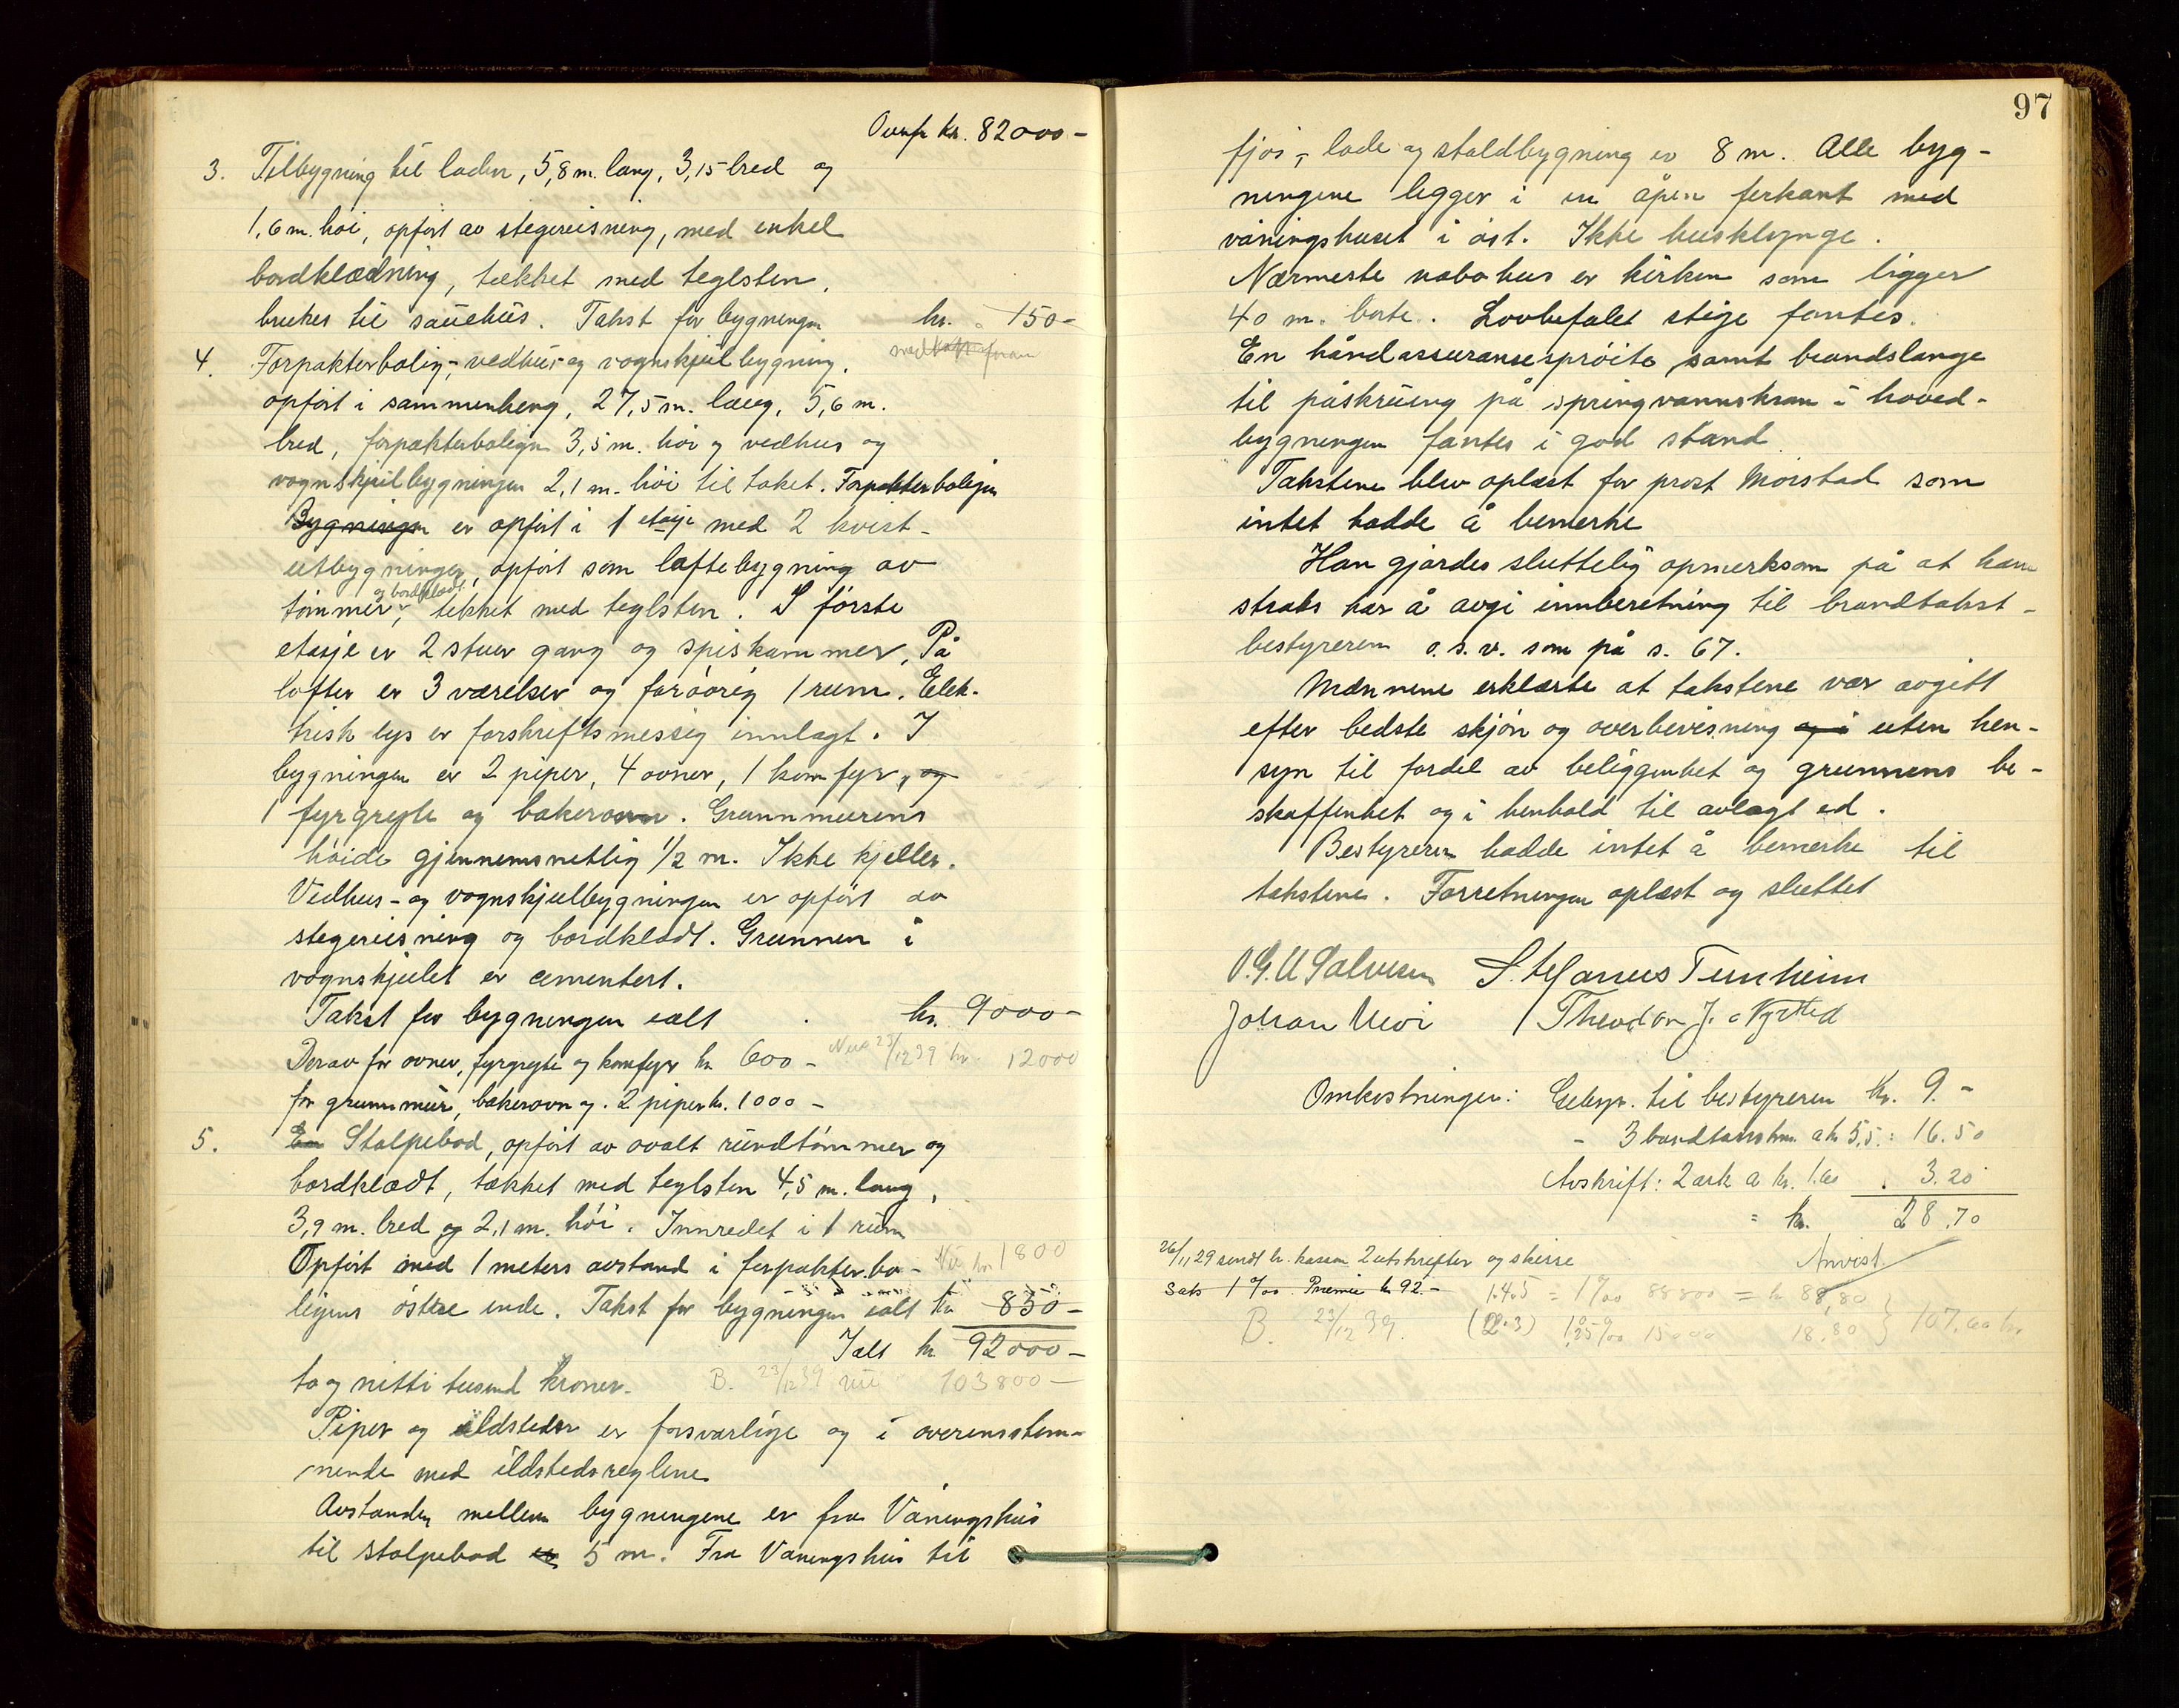 Overf kr. 82000-
3. Tilbygning til laden, 5,8 m. lang, 3,15 bred og
1,6 m. höi, opfört av stegereisning, med enkel
bordklædning, tækket med teglsten,
brukes til sauehus. Takst for bygningen kr. 150-
4. Forpakterbolig-, vedhus- og vognskjul bygning.
opfört i sammenheng, 27,5 m. lang, 5,6 m.
bred, forpakterboligen 3,5 m. höi og vedhus og
vognskjulbygningen 2,1 m. höi til taket. Forpakterboligen
Bygningen er opfört i 1 etasje med 2 kvist-
utbygninger, opfört som laftebygning av
og bordklædt
tömmer, tekket med teglsten. I förste
etasje er 2 stuer gang og spiskammer. På
loftet er 3 værelser og foröorig 1 rum. Elek-
trisk lys er forskriftsmessig innlagt. I
bygningen er 2 piper, 4 ovner, 1 komfyr, og
1 fyrgryte og bakerovn. Grunnmurens
höide gjennemsnitlig 1/2 m. Ikke kjeller.
Vedhus- og vognskjulbygningen er opfört av
stegereisning og bordklædt. Grunnen i
vognskjulet er cementert.
Takst for bygningen ialt kr. 9000-
Derav for ovner, fyrgryte og komfyr kr 600- 23/12 39 kr. 12000
for grunnmur, bakerovn og 2 piper kr. 1000-
5. En Stolpebod, opfört av ovalt rundtömmer og
bordklædt, tækket med teglsten 4,5 m. lang,
3,9 m. bred og 2,1 m. höi. Innredet i 1 rum
Opfört med 1 meters avstand i forpakterbo- Nu kr. 1800
ligens östre ende. Takst for bygningen ialt kr 850-
Ialt kr 92000-
to og nitti tusend kroner. B. 23/12 39 nu 103800-
Piper og ildsteder er forsvarlige og i overensstem-
mende med ildstedsreglene
Avstanden mellem bygningene er fra Våningshus
til stolpebod er 5 m. Fra Våningshus til
97
fjös-, lade og staldbygning er 8 m. Alle byg-
ningene ligger i en åpen ferkant med
våningshuset i öst. Ikke husklynge.
Nærmeste nabohus er kirken som ligger
40 m. borte. Lovbefalet stige fantes.
En håndassuransespröite samt brandslange
til påskruing på springvannskran i hoved-
bygningen fantes i god stand
Takstene blev oplæst for prost Mörstad som
intet hadde å bemerke
Han gjordes sluttelig opmerksom på at han
straks har å avgi innberetning til brandtakst-
bestyreren o.s.v. som på s. 67.
Mænnene erklærte at takstene var avgitt
efter bedste skjön og overbevisning og i uten hen-
syn til fordel av beliggenhet og grunnens be-
skaffenhet og i henhold til avlagt ed.
Bestyreren hadde intet å bemerke til
takstene. Forretningen oplæst og sluttet
O.G.U Salvesen S. Ternheim
Johan Moi Theodor J.
Omkostninger: Gebyr. til bestyreren Kr. 9.-
- 3 a kr 5,5.: 16.50
Avskrift: 2 ark a kr. 1.60 3.20
= kr. 28.70
26/11 29 sendt br. kassen 2 utskrifter og skisse Anvist
Sats 1 ‰ Premie kr 92.- 1.4.5 = 1‰ 88800 = kr 88,80
B. 23/12 39. (2.3) 1,25‰ 15000 18.80 } 107.60 kr